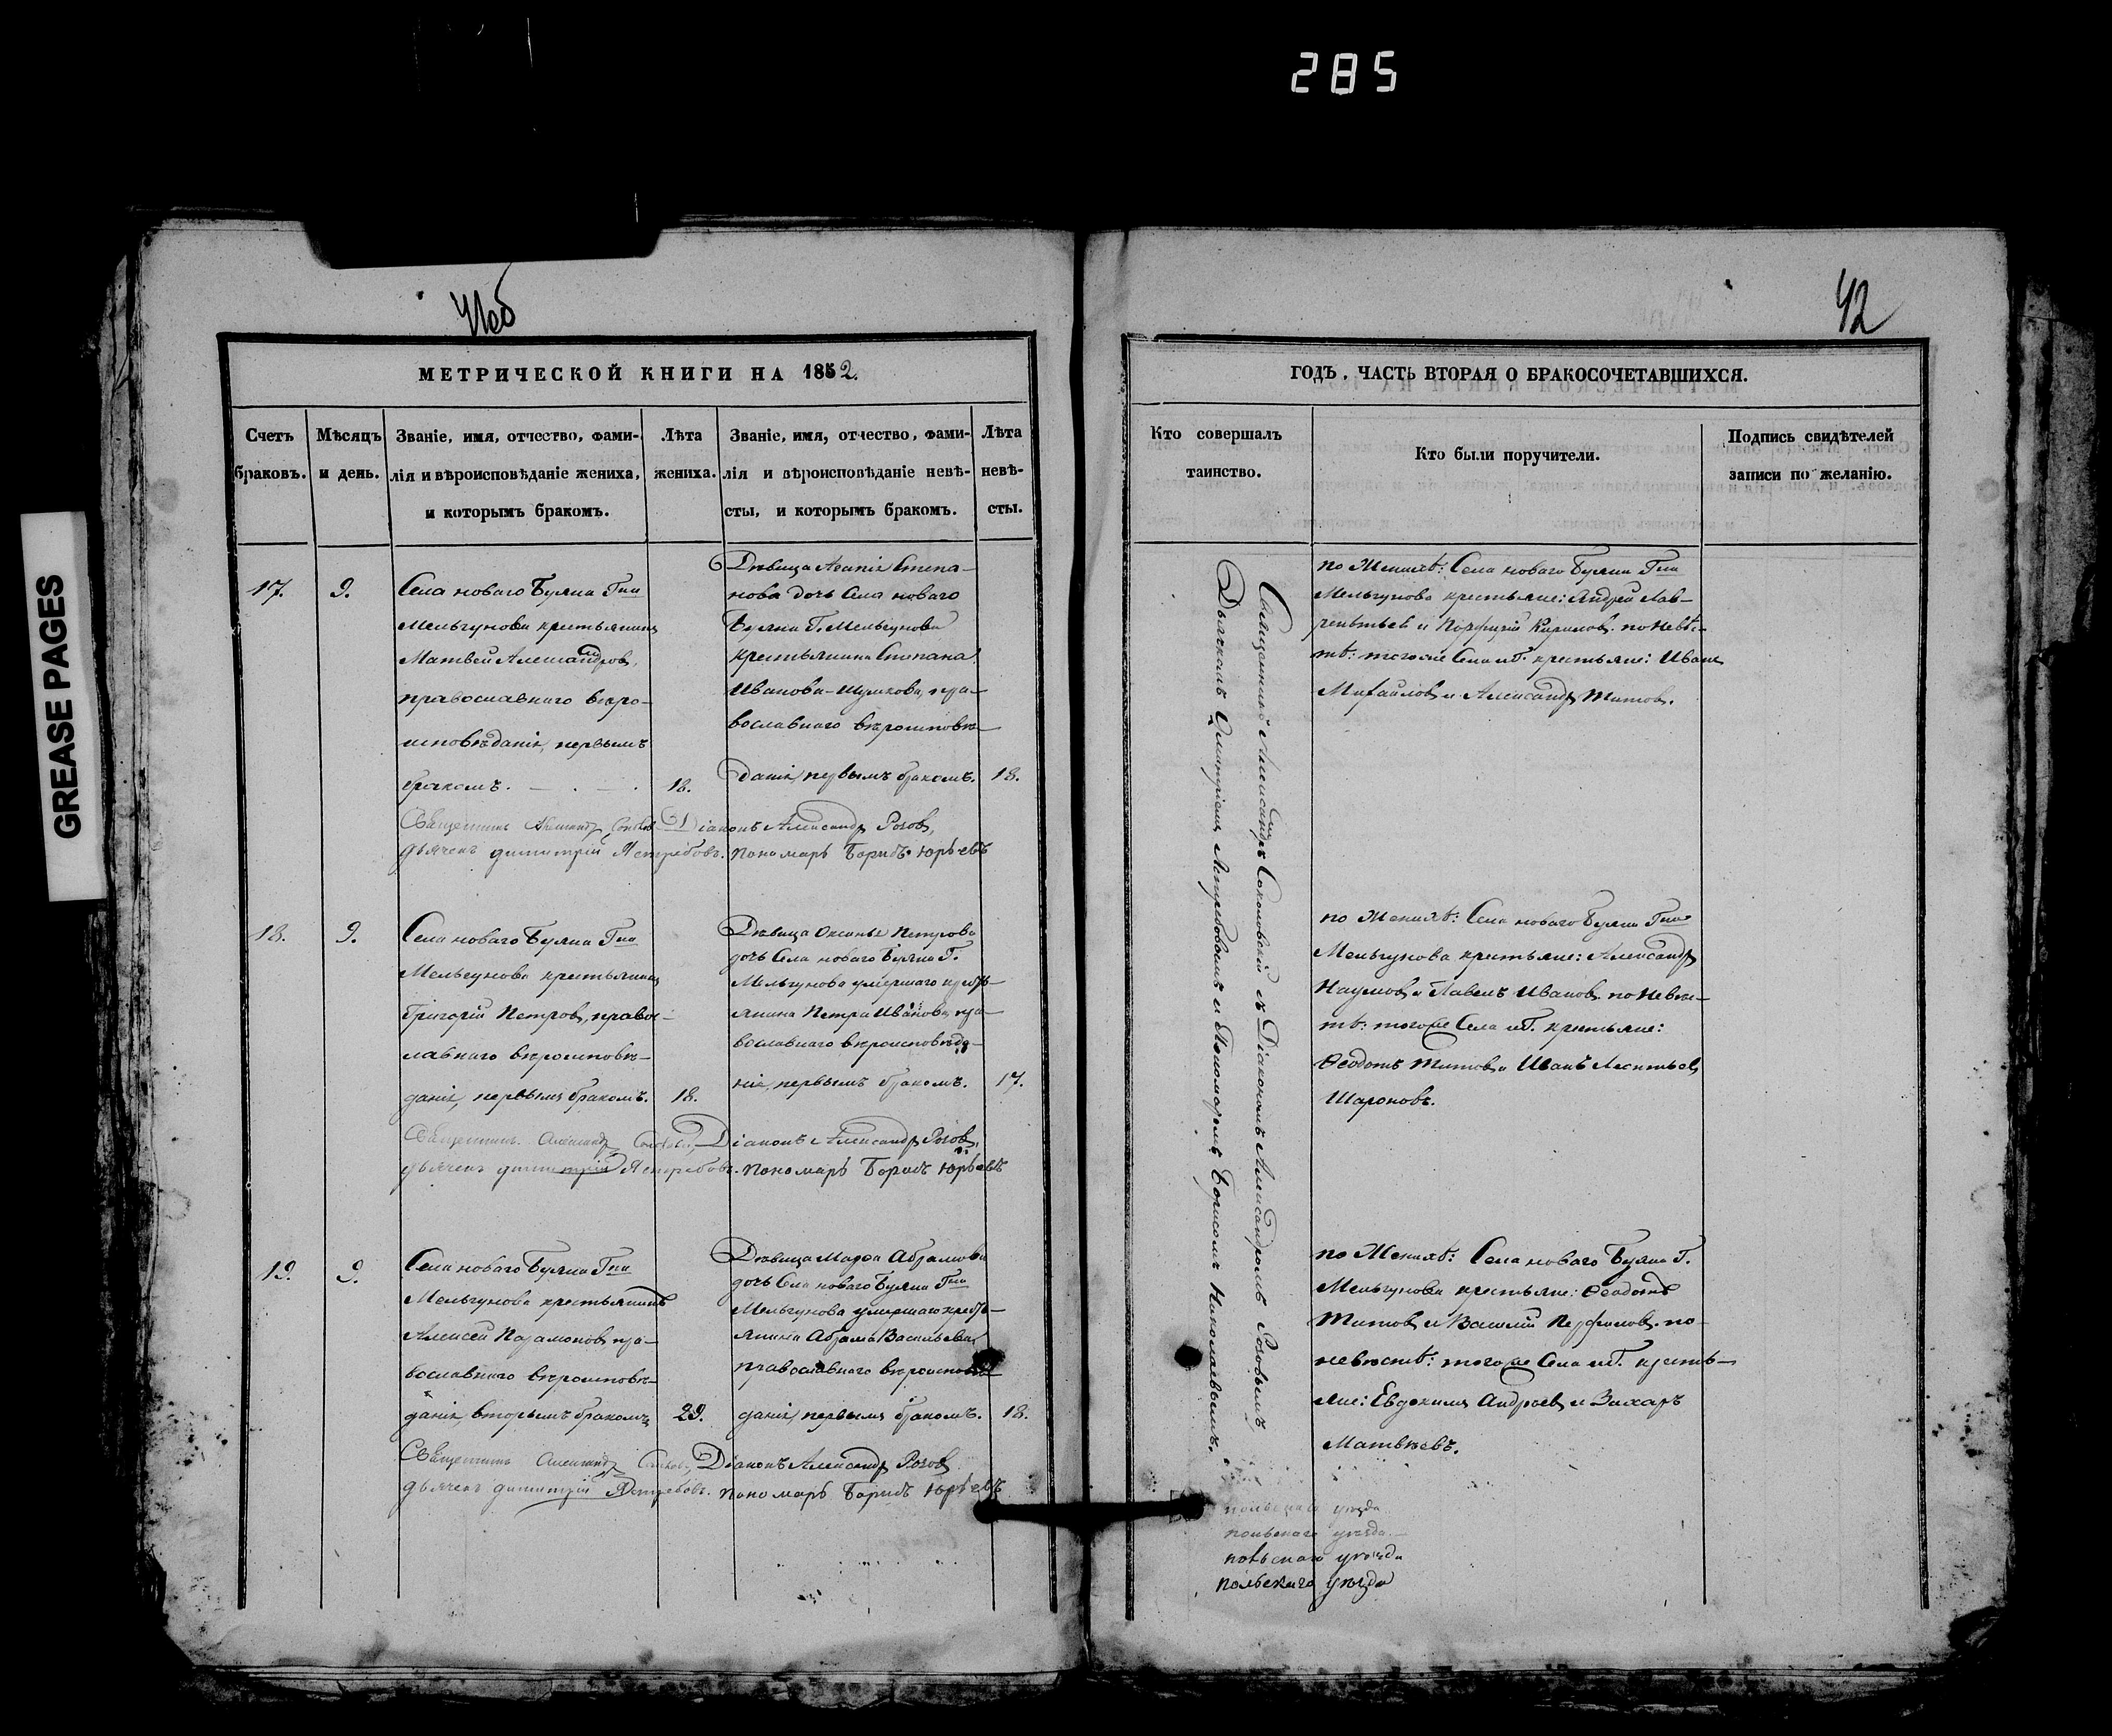 285
GREASE PAGES
42
МЕТРИЧЕСКОЙ КНИГИ НА 1852.
Счетъ браковъ.
Мѣсяцъ и день.
Званіе, имя, отчество, фами-
лія и вѣроисповѣданіе жениха,
и которымъ бракомъ.
Лѣта
жениха.
Званіе, имя, отчество, фами-
лія и вѣроисповѣданіе невѣ-
сты, и которымъ бракомъ.
Лѣта
невѣ-
сты.
17.
9.
Села новаго Буяна Гна
Мельгунова крестьянинъ
Матвей Александров,
православнаго вѣро-
исповѣданія, первымъ
бракомъ.
18.
Дѣвица Степа-
нова дочь Села новаго
Буяна Г. Мельгунова
крестьянина Степана
Иванова, пра-
вославнаго вѣроисповѣ-
данія, первымъ бракомъ.
18.
Священникъ Александр Діаконъ Александр Рогов,
дьячекъ димитрій Ястребовъ. пономарь Борисъ Юрьевъ
18.
9.
Села новаго Буяна Гна
Мельгунова крестьянинъ
Григорій Петров, правос-
лавнаго вѣроисповѣ-
данія, первымъ бракомъ.
18.
Дѣвица Петрова
дочь Села новаго Буяна Г.
Мельгунова умершаго кресть-
янина Петра Иванова, пра-
вославнаго вѣроисповѣда-
нія, первымъ бракомъ.
17.
Священникъ Александр Діаконъ Александр Рогов,
дьячекъ димитрій Ястребовъ. пономарь Борисъ Юрьевъ
19.
9.
Села новаго Буяна Гна
Мельгунова крестьянинъ
Алексей Парамонов, пра-
вославнаго вѣроисповѣ-
данія, вторымъ бракомъ
29.
Дѣвица Марѳа Абрамова
дочь Села новаго Буяна Гна
Мельгунова умершаго кресть-
янина Абрама Васильева
православнаго вѣроисповѣ-
данія, первымъ бракомъ.
18.
Священникъ Александр Діаконъ Александр Рогов
дьячекъ димитрій Ястребовъ. пономарь Борисъ Юрьевъ
ГОДЪ, ЧАСТЬ ВТОРАЯ О БРАКОСОЧЕТАВШИХСЯ.
Кто совершалъ
таинство.
Кто были поручители.
Подпись свидѣтелей
записи по желанію.
Священникъ Александръ Соколовскій съ Діакономъ Александромъ Роговымъ,
Дьячкомъ Димитріемъ Ястребовымъ и Пономаремъ Борисомъ Николаевымъ.
по Женихѣ: Села новаго Буяна Гна
Мельгунова крестьяне: Андрей Лав-
рентьев и Порфирій Кирилов. по Невѣс-
тѣ: тогоже Села и Г. крестьяне: Иванъ
Михайлов и Александр Титов.
по Женихѣ: Села новаго Буяна Гна
Мельгунова крестьяне: Александр
Наумов, и Павелъ Иванов. по Невѣс-
тѣ: тогоже Села и Г. крестьяне:
Ѳеодотъ Титов, и Иванъ Леонтьев
Шароновъ.
по Женихѣ: Села новаго Буяна Г.
Мельгунова крестьяне: Ѳеодотъ
Титов и Василій Перфилов. по
невѣстѣ: тогоже Села и Г. кресть-
яне: Евдокимъ Андреев, и Захаръ
Матвѣевъ.
польскаго уѣзда
польскаго уѣзда
польскаго уѣзда
польскаго уѣзда